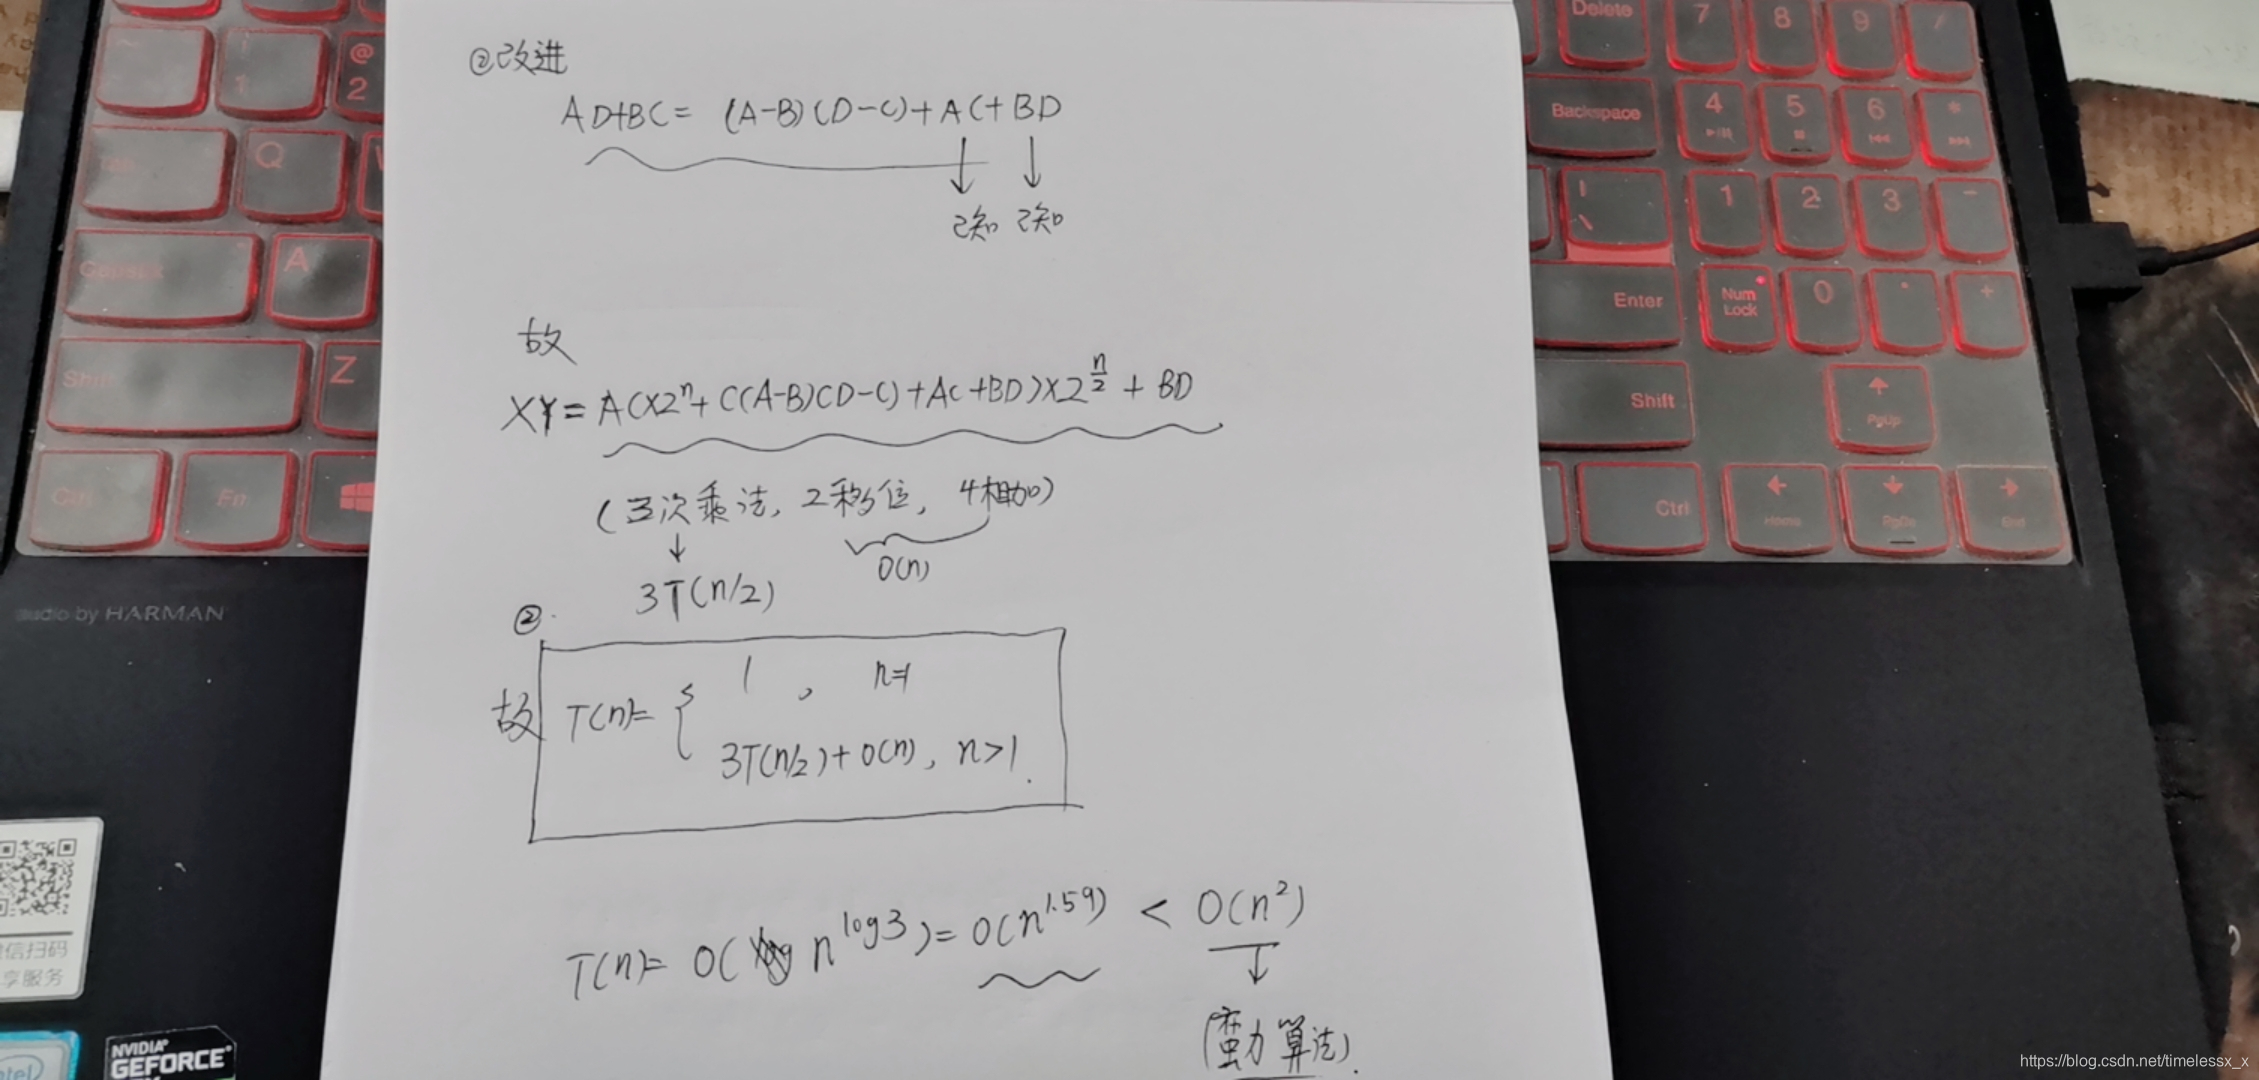 ②改进
AD+BC= (A-B)(D-C)+AC+BD
↓ ↓
已知 已知
故
XY=AC×2^n+((A-B)(D-C)+AC+BD)×2^{n/2}+BD
(三次乘法, 2移位, 4相加)
↓
O(n)
3T(n/2)
②.
故 T(n)= { 1 , n=1
3T(n/2)+O(n), n>1.
T(n)= O( n^{log3})= O(n^{1.59}) < O(n^2)
↓
(蛮力算法).
~
@
2
Tab
Q
CapsLk
A
Shift
Z
Ctrl
Fn
Delete
7
8
9
/
Backspace
4
5
6
*
|
\
1
2
3
-
Enter
Num
Lock
0
.
+
Shift
PgUp
Ctrl
Home
PgDn
End
audio by HARMAN
微信扫码
享服务
intel
NVIDIA
GEFORCE
https://blog.csdn.net/timelessx_x